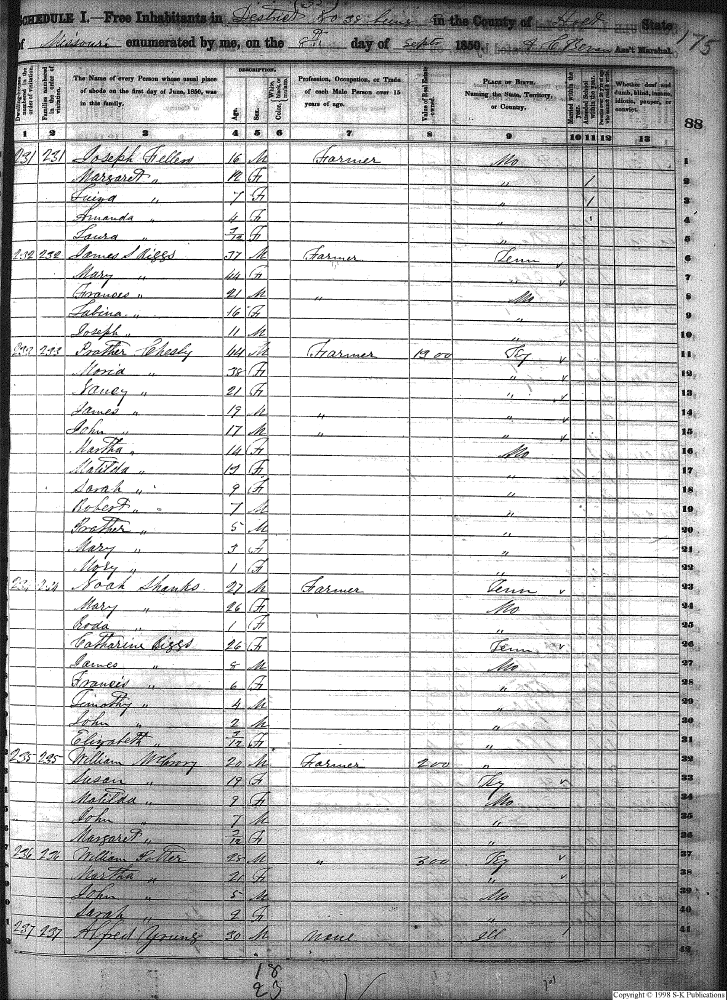 SCHEDULE I.—Free Inhabitants in District No 38 in the County of Holt State
of Missouri enumerated by me, on the 8th day of Sept 1850. Ass't Marshal. 175
Dwelling-houses numbered in the order of visitation.
Families numbered in the order of visitation.
The Name of every Person whose usual place of abode on the first day of June, 1850, was in this family.
DESCRIPTION.
Age.
Sex.
Color, White, black, or mulatto.
Profession, Occupation, or Trade of each Male Person over 15 years of age.
Value of Real Estate owned.
PLACE OF BIRTH, Naming the State, Territory, or Country.
Married within the year.
Attended School within the year.
Whether deaf and dumb, blind, insane, idiotic, pauper, or convict.
88
1 2 3 4 5 6 7 8 9 10 11 12 13
231 231 Joseph Fellers 16 M Farmer Mo 1
Margaret " 12 F " 1 2
" 7 F " 1 3
Amanda " 4 F " 4
Laura " F " 5
232 232 James S Riggs 37 M Farmer Tenn v 6
Mary " 44 F " v
Frances " 21 M " Mo 8
Sabina " 16 F " 9
Joseph " 11 M " 10
233 233 Prather Chesly 44 M Farmer 1900 Ky v 11
Moria " 38 F " v 12
Nancy " 21 F " v 13
James " 19 M " " v 14
John " 17 M " " v 15
Martha " 14 F Mo 16
Matilda " F " 17
Sarah " 9 F " 18
Robert " 7 M " 19
Prather " 5 M 20
Mary " 3 F " 21
Mory " 1 F "
234 Noah Shanks 27 M Farmer Tenn v 23
Mary " 26 F Mo 24
Roda " 1 F " 25
Catharine Riggs 26 F Tenn v 26
James " 8 M Mo 27
Francis " 6 F " 28
Timothy " 4 M " 29
John " 2 M " 30
Elizabeth " F " 31
235 235 William 20 M Farmer 200 " 32
Susan " 19 F Ky v 33
Matilda " 9 F Mo 34
John " 7 M " 35
Margaret " F "
236 236 William 25 M " 300 Ky v 37
Martha " 21 F " v 38
John " 5 M Mo 39
Sarah " 2 F "
237 237 Alfred Young 30 M None Ill 41
42
18
23
Copyright © 1998 S-K Publications